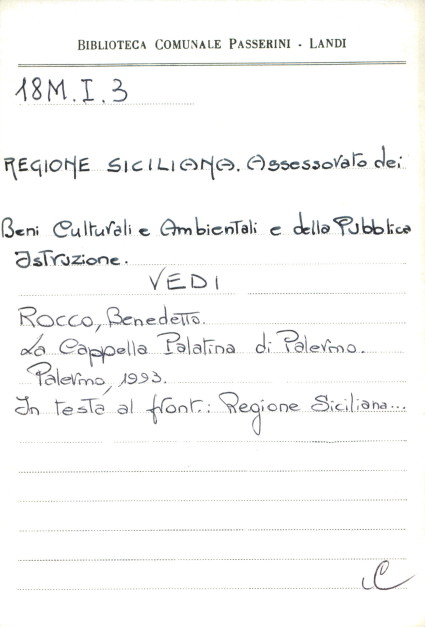 BIBLIOTECA COMUNALE PASSERINI - LANDI
18M.I.3
REGIONE SICILIANA. Assessorato dei
Beni Culturali e Ambientali e della Pubblica
Istruzione.
VEDI
ROCCO, Benedetto.
La Cappella Palatina di Palermo.
Palermo, 1993.
In testa al front.: Regione Siciliana...
C